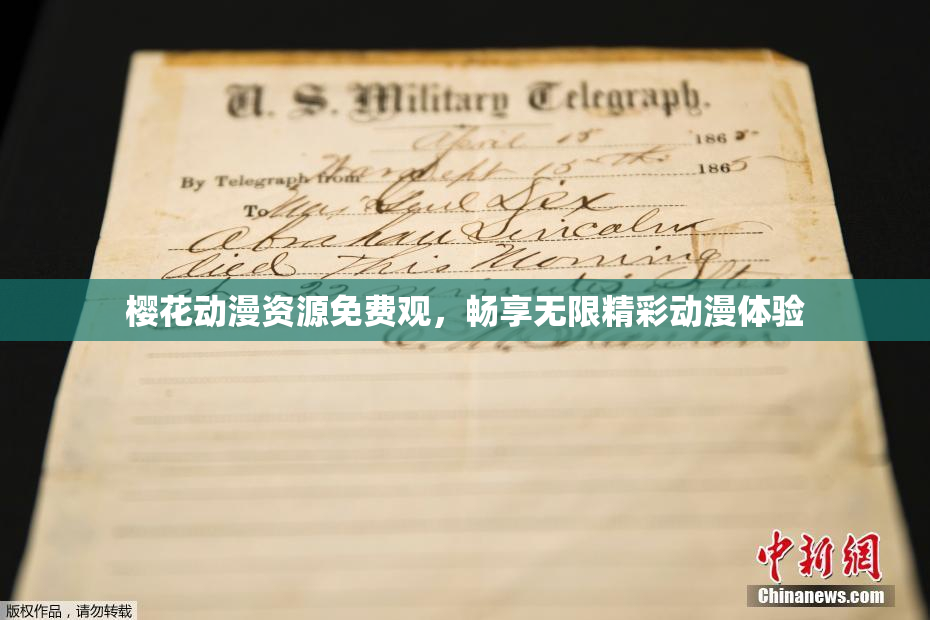 U. S. Military Telegraph.
April 15 1865
By Telegraph from War Dept 15th 1865
To Maj Genl Dix
Abraham Lincoln
died This Morning
22 minutes after
樱花动漫资源免费观，畅享无限精彩动漫体验
中新网
Chinanews.com
版权作品，请勿转载